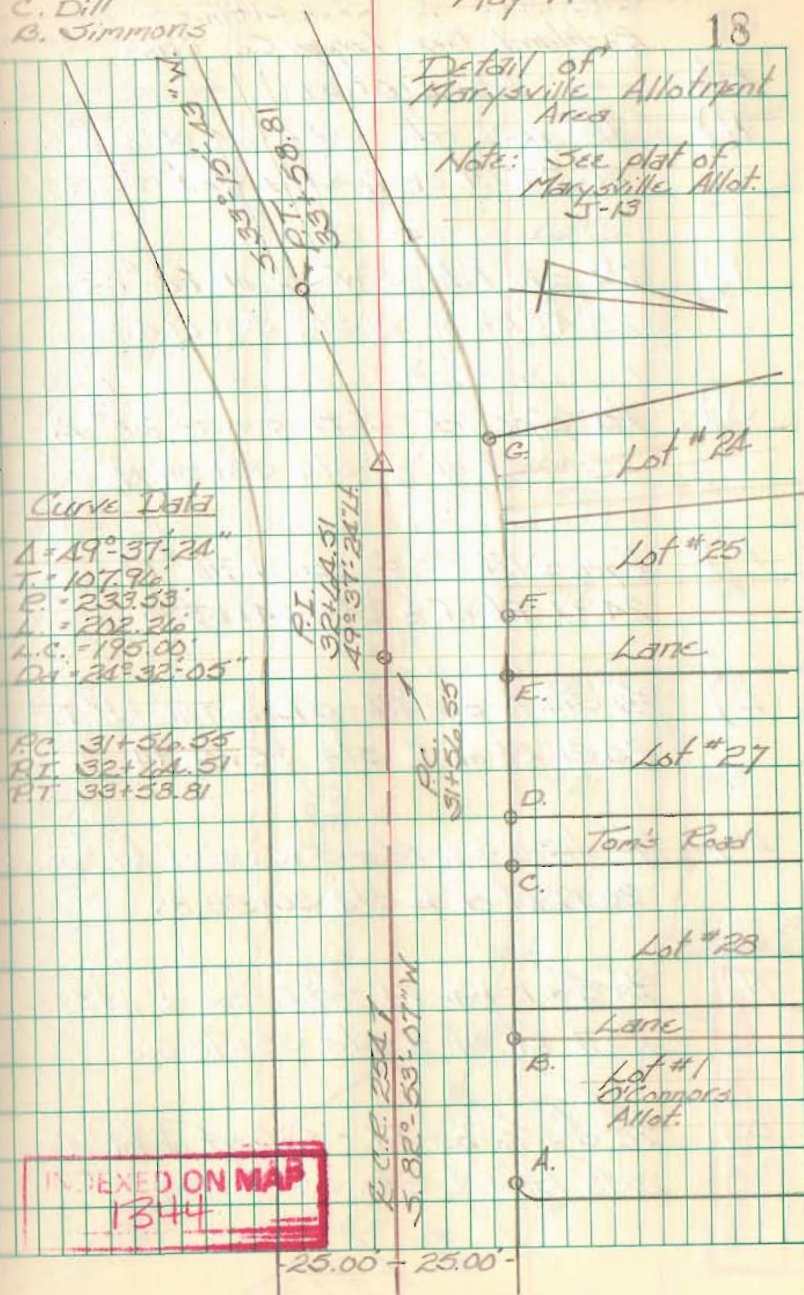 C. Dill
B. Simmons
May
18
Detail of
Marysville Allotment
Area
Note: See plat of
Marysville Allot.
J-13
S. 33°-15'-43" W.
P.T.
33+58.81
G.
Lot #24
Curve Data
Δ = 49°-37'-24"
T. = 107.96'
R. = 233.53'
L. = 202.26'
L.C. = 195.00'
Da = 24°-32'-05"
P.C. 31+56.55
P.I. 32+64.51
P.T. 33+58.81
P.I.
32+64.51
49°-37'-24" Lt.
P.C.
31+56.55
Lot #25
F.
Lane
E.
Lot #27
D.
Tom's Road
C.
Lot #28
Lane
B.
Lot #1
O'Connors
Allot.
A.
S. 82°-53'-07" W
INDEXED ON MAP
1344
25.00' - 25.00'